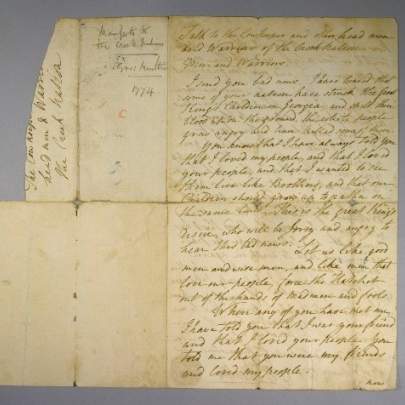 The Cowkeeper
head men & Warriors
the Creek Nation
Manifesto to
the Creek Indians
1774
Talk to the Cowkeeper and other head men
and Warriors of the Creek Nation
Men and Warriors
I send you bad news I have heard that
some of your nation have struck the great
Kings Children in Georgia and spilt their
blood upon the ground. the white people
grow angry and have killed some of them
You know that I have always told you
that I loved my people, and that I loved
your people, and that I wanted to see
them live like Brothers, and that our
Children should grow up together on
the same land. This is the great Kings
desire, who will be sorry and angry to
hear this bad news. Let us like good
men and wise men, and like men that
love our people force the Hatchet
out of the hands of Madmen and fools.
When any of you have met me
I have told you that I was your friend
and that I loved your people. You
told me that you were my friends
and loved my people.
now